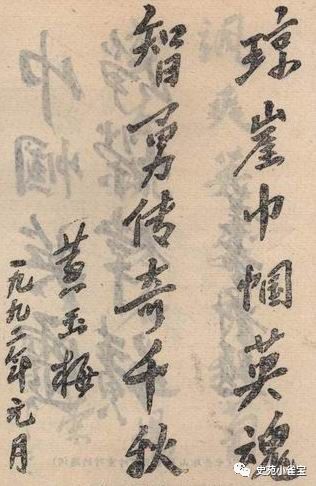 琼崖巾帼英魂
智勇传奇千秋
黄玉梅
一九九二年元月
史苑小雀宝